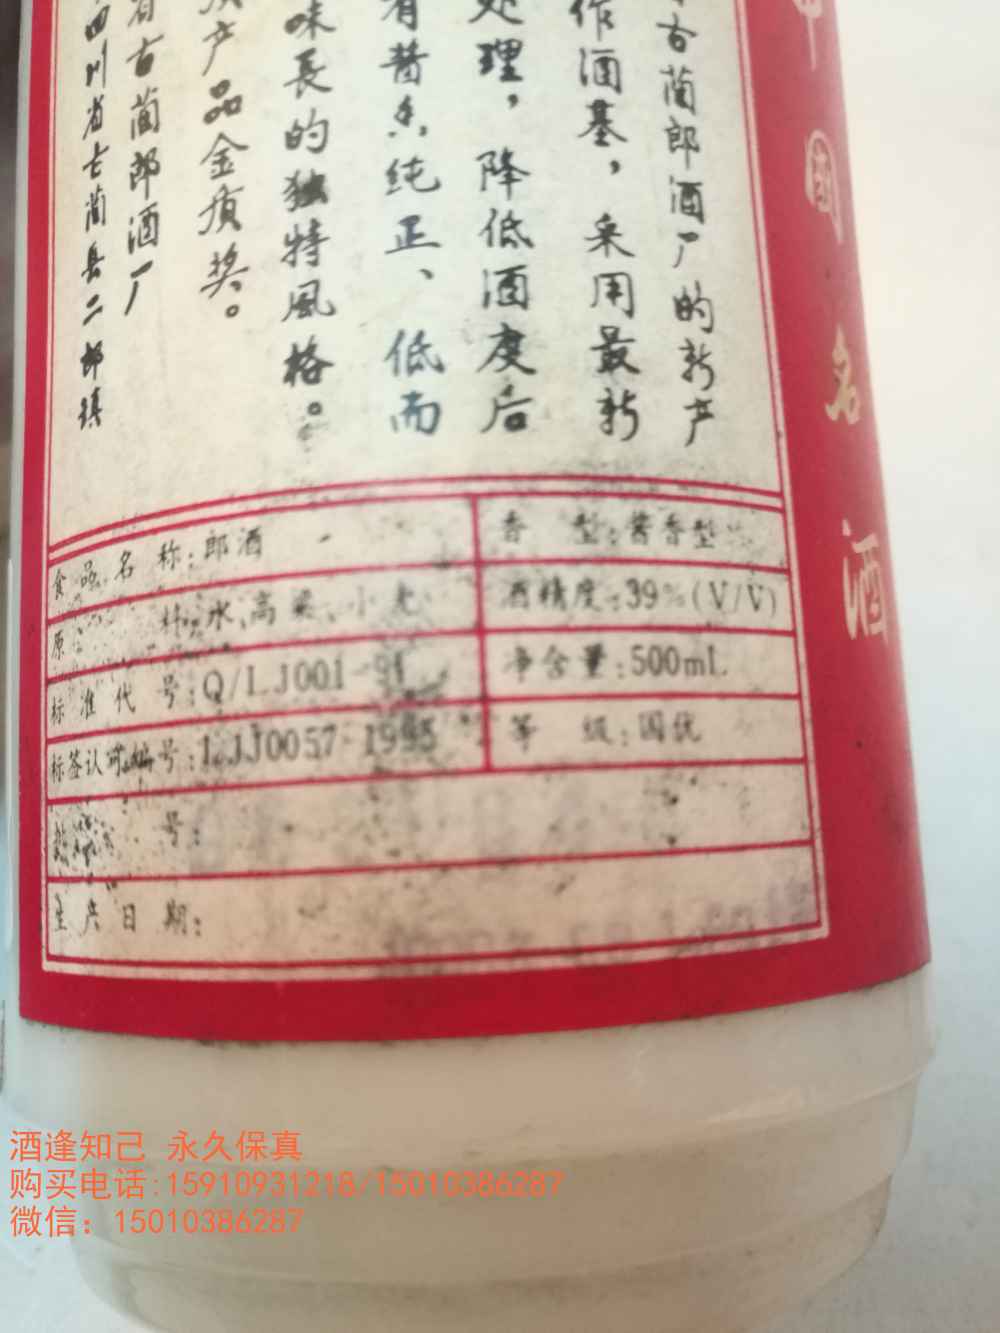 中國名酒
古蔺郎酒厂的新产
作酒基，采用最新
处理，降低酒度后
有酱香纯正、低而
味長的独特風格。
质产品金质奖。
省古蔺郎酒厂
四川省古蔺县二郎镇
食品名称：郎酒
香 型：酱香型
原 料：水、高粱、小麦
酒精度：39%(V/V)
标准代号：Q/LJ001-91
净含量：500mL
标签认可编号：LJJ0057-1995
等 级：国优
号：
生产日期：
酒逢知己 永久保真
购买电话：15910931218/15010386287
微信：15010386287